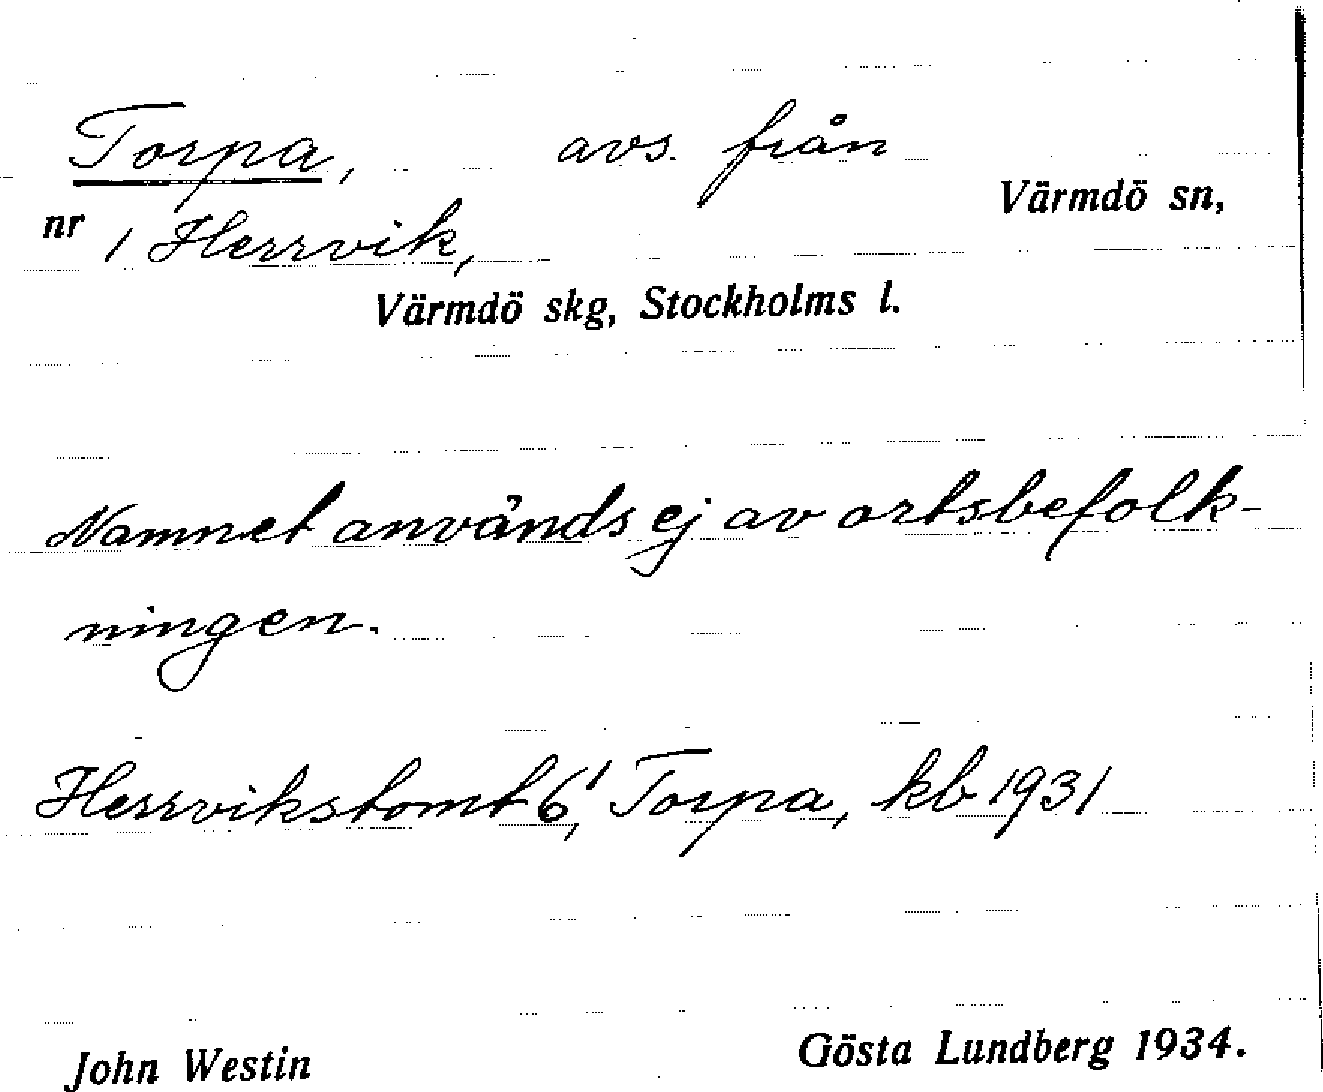 Torpa, avs. från
Värmdö sn,
nr 1 Herrvik,
Värmdö skg, Stockholms l.
Namnet används ej av ortsbefolk-
ningen.
Herrvikstomt 6¹, Torpa, kb 1931
John Westin Gösta Lundberg 1934.